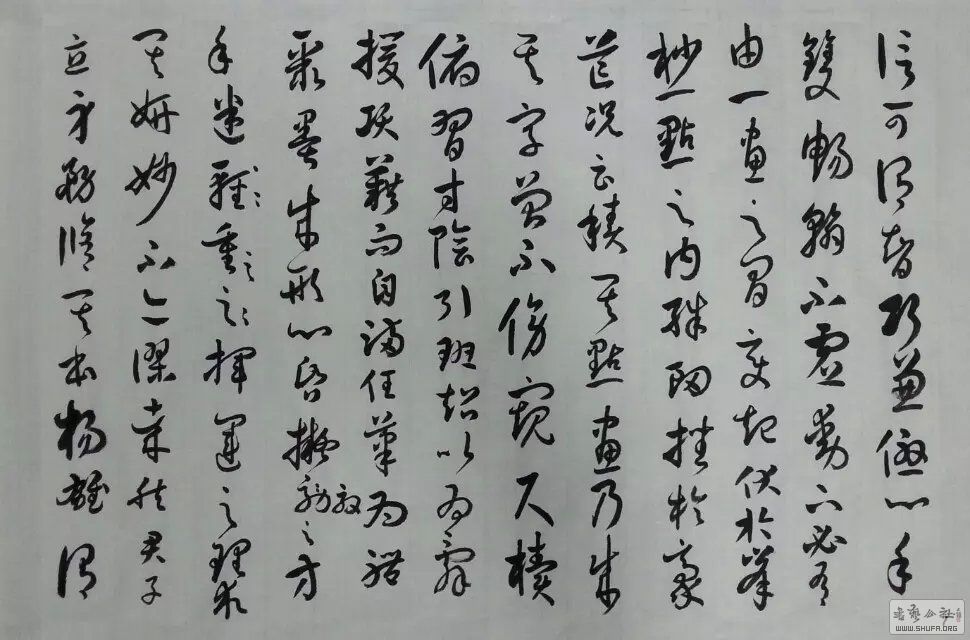 信可謂智巧兼優心手
雙暢翰不虛動下必有
由一畫之間變起伏於峯
杪一點之內殊衄挫於豪
芒況云積其點畫乃成
其字曾不傍窺尺櫝
俯習寸陰引班超以為辭
援項籍而自滿任筆為體
聚墨成形心昏擬効之方
手迷輕重之揮運之理求
其妍妙不亦謬哉然君子
立身務脩其本楊雄謂
WWW.SHUFA.ORG